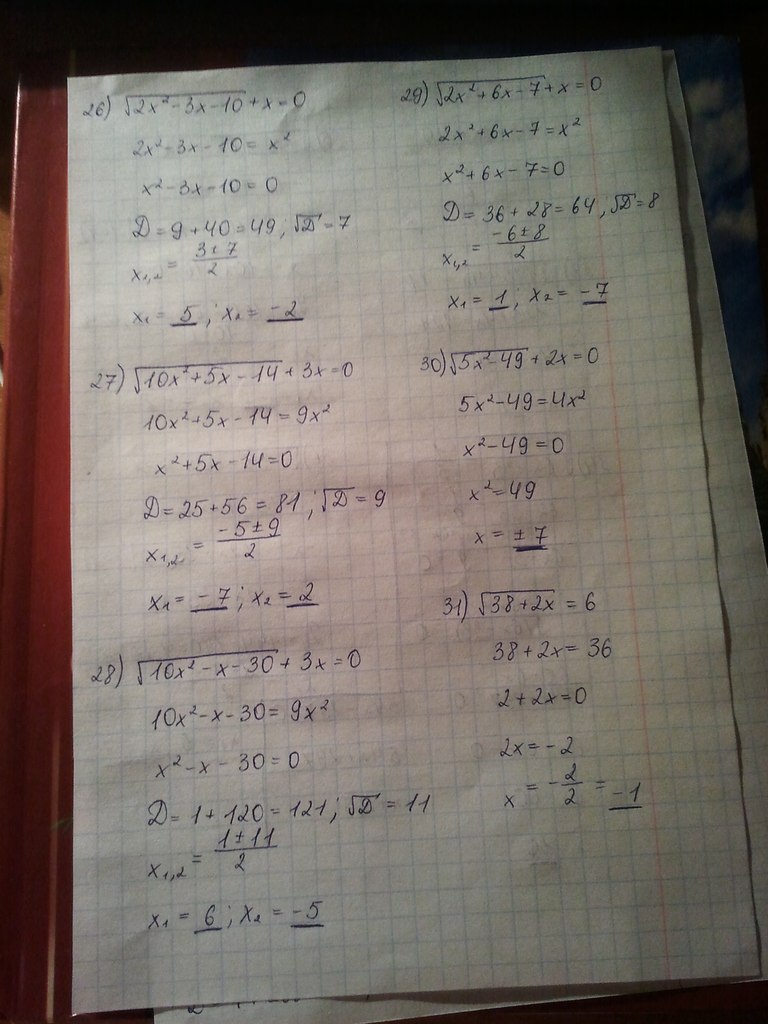 26) √(2x² - 3x - 10) + x = 0
2x² - 3x - 10 = x²
x² - 3x - 10 = 0
D = 9 + 40 = 49 ; √D = 7
x₁,₂ = (3 ± 7)/2
x₁ = 5 ; x₂ = -2
27) √(10x² + 5x - 14) + 3x = 0
10x² + 5x - 14 = 9x²
x² + 5x - 14 = 0
D = 25 + 56 = 81 ; √D = 9
x₁,₂ = (-5 ± 9)/2
x₁ = -7 ; x₂ = 2
28) √(10x² - x - 30) + 3x = 0
10x² - x - 30 = 9x²
x² - x - 30 = 0
D = 1 + 120 = 121 ; √D = 11
x₁,₂ = (1 ± 11)/2
x₁ = 6 ; x₂ = -5
29) √(2x² + 6x - 7) + x = 0
2x² + 6x - 7 = x²
x² + 6x - 7 = 0
D = 36 + 28 = 64 ; √D = 8
x₁,₂ = (-6 ± 8)/2
x₁ = 1 ; x₂ = -7
30) √(5x² - 49) + 2x = 0
5x² - 49 = 4x²
x² - 49 = 0
x² = 49
x = ± 7
31) √(38 + 2x) = 6
38 + 2x = 36
2 + 2x = 0
2x = -2
x = -2/2 = -1